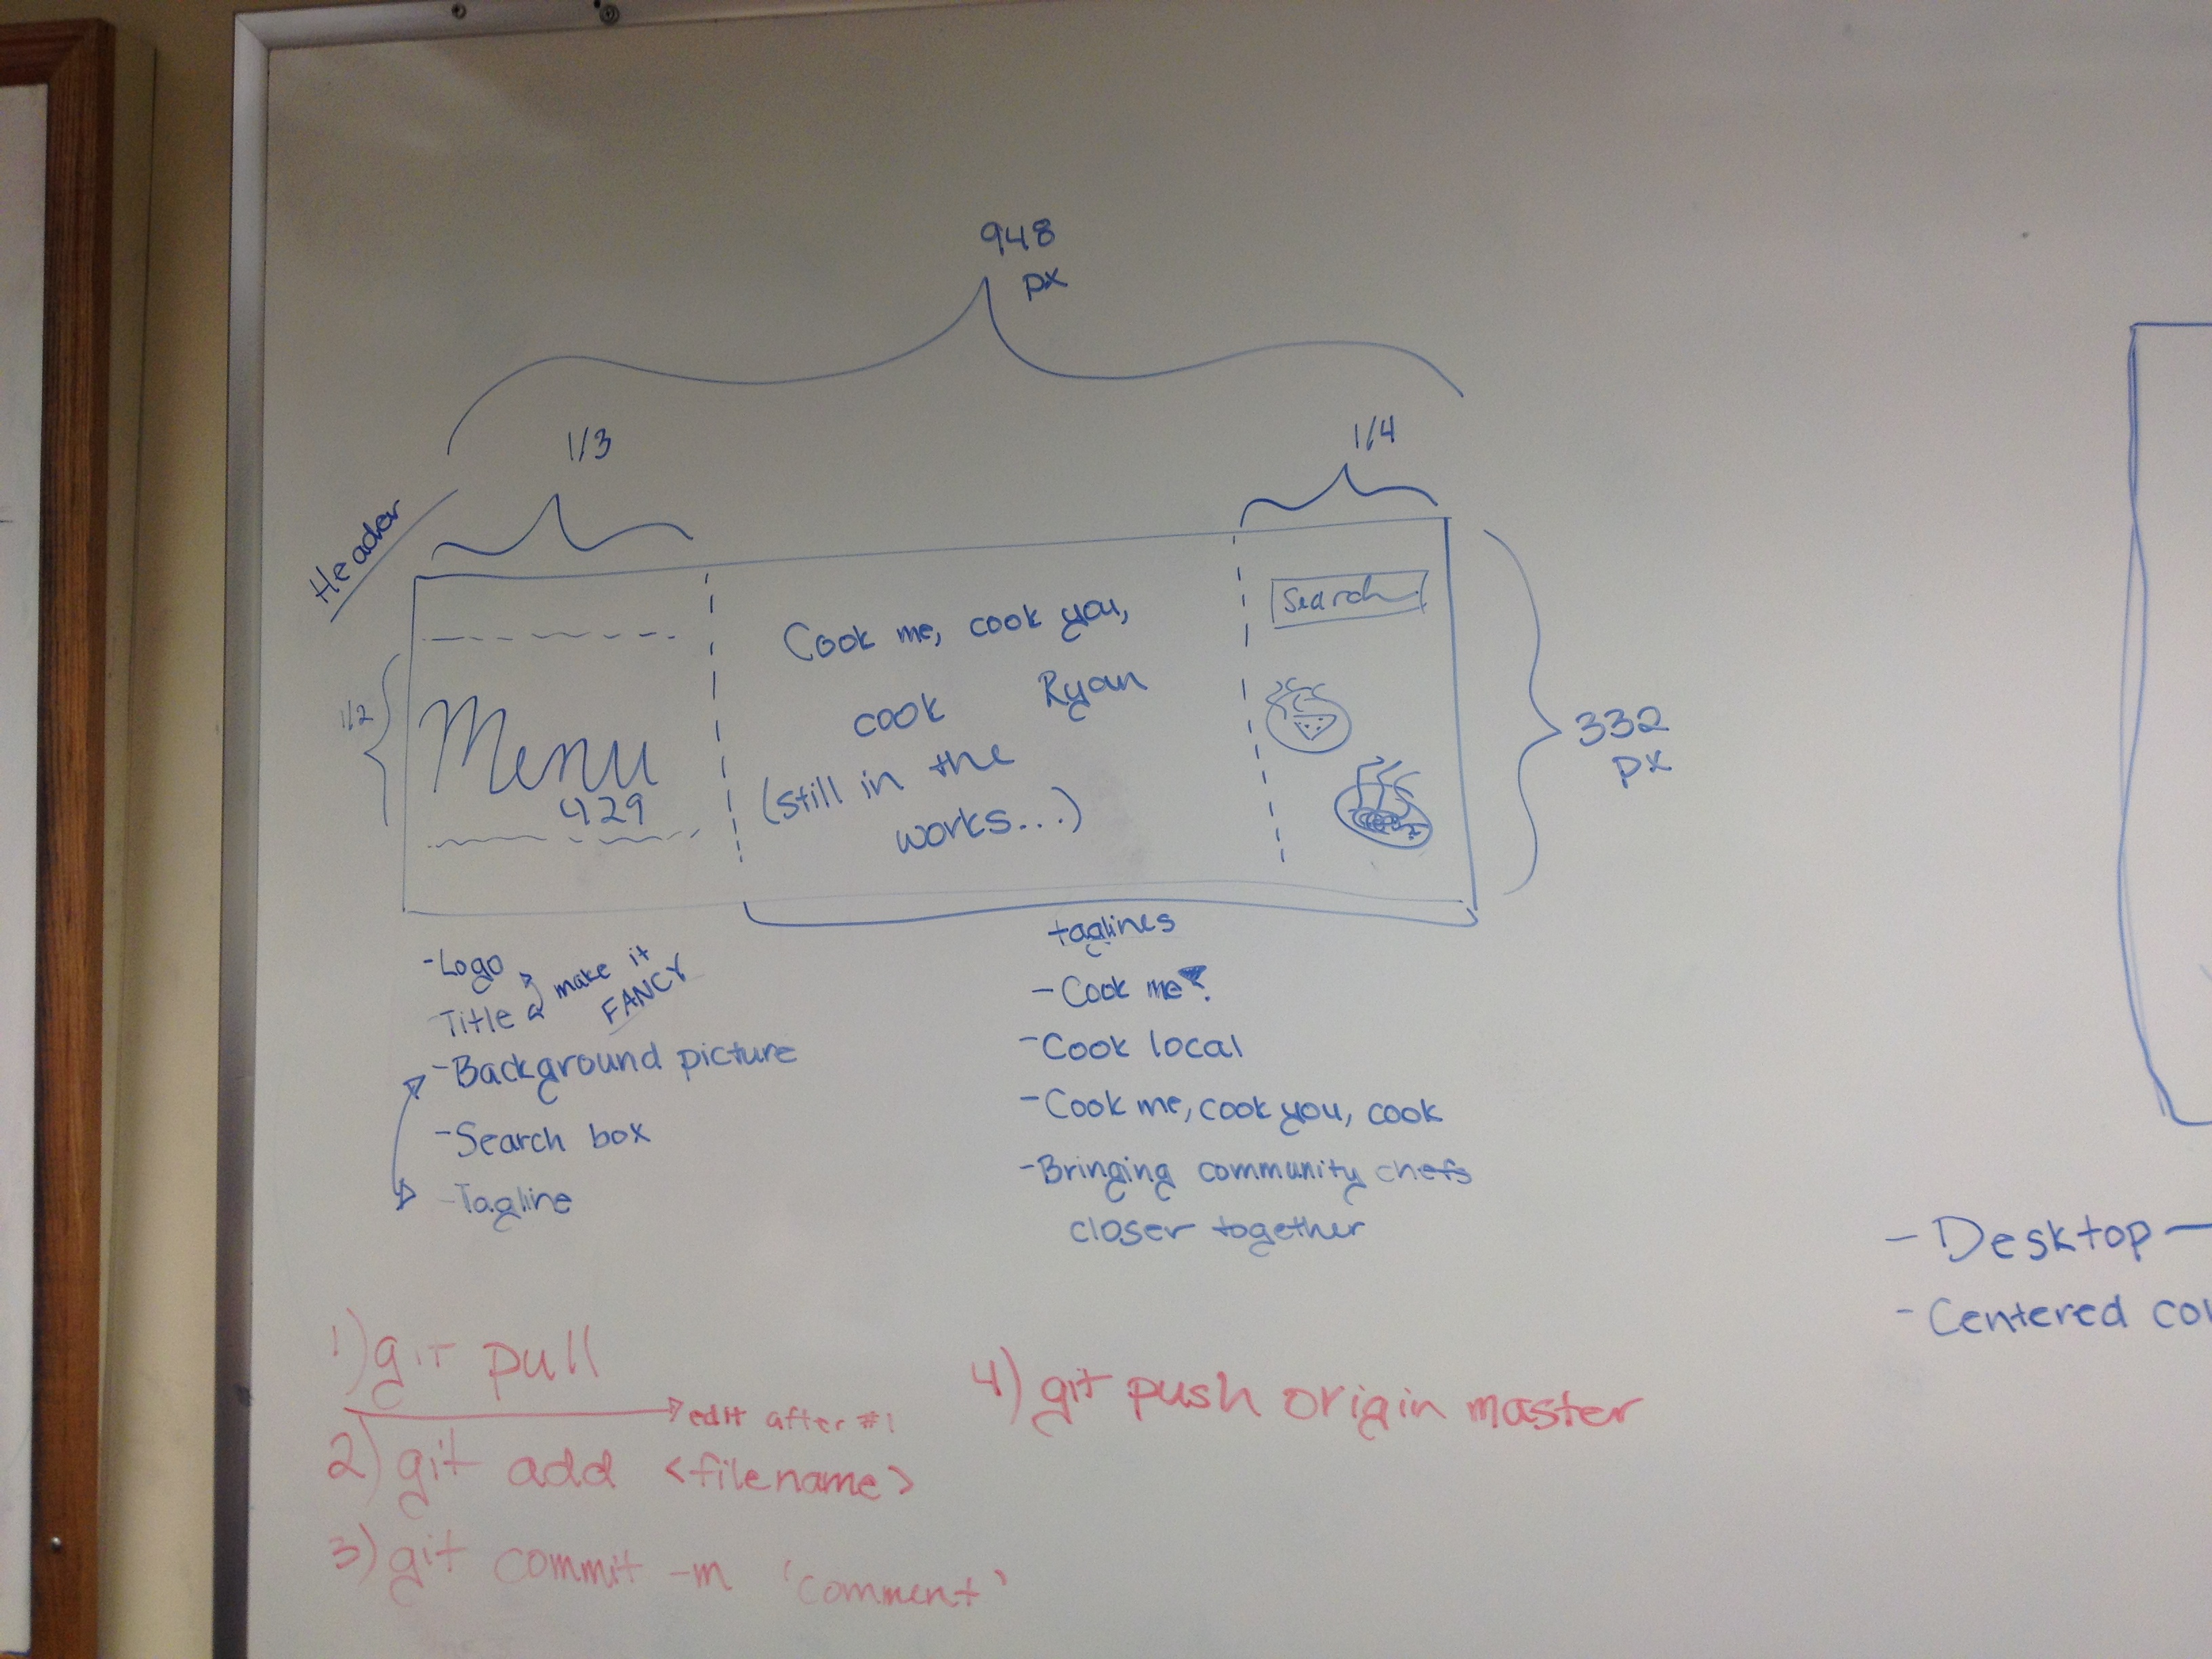 948
px
1/3
1/4
Header
Search
Cook me, cook you,
cook Ryan
(still in the
works...)
1/2
Menu
429
332
px
-Logo
-Title
make it
FANCY
-Background picture
-Search box
-Tagline
taglines
-Cook me?
-Cook local
-Cook me, cook you, cook
-Bringing community chefs
closer together
-Desktop
-Centered
1) git pull
edit after #1
2) git add <filename>
3) git commit -m 'comment'
4) git push origin master